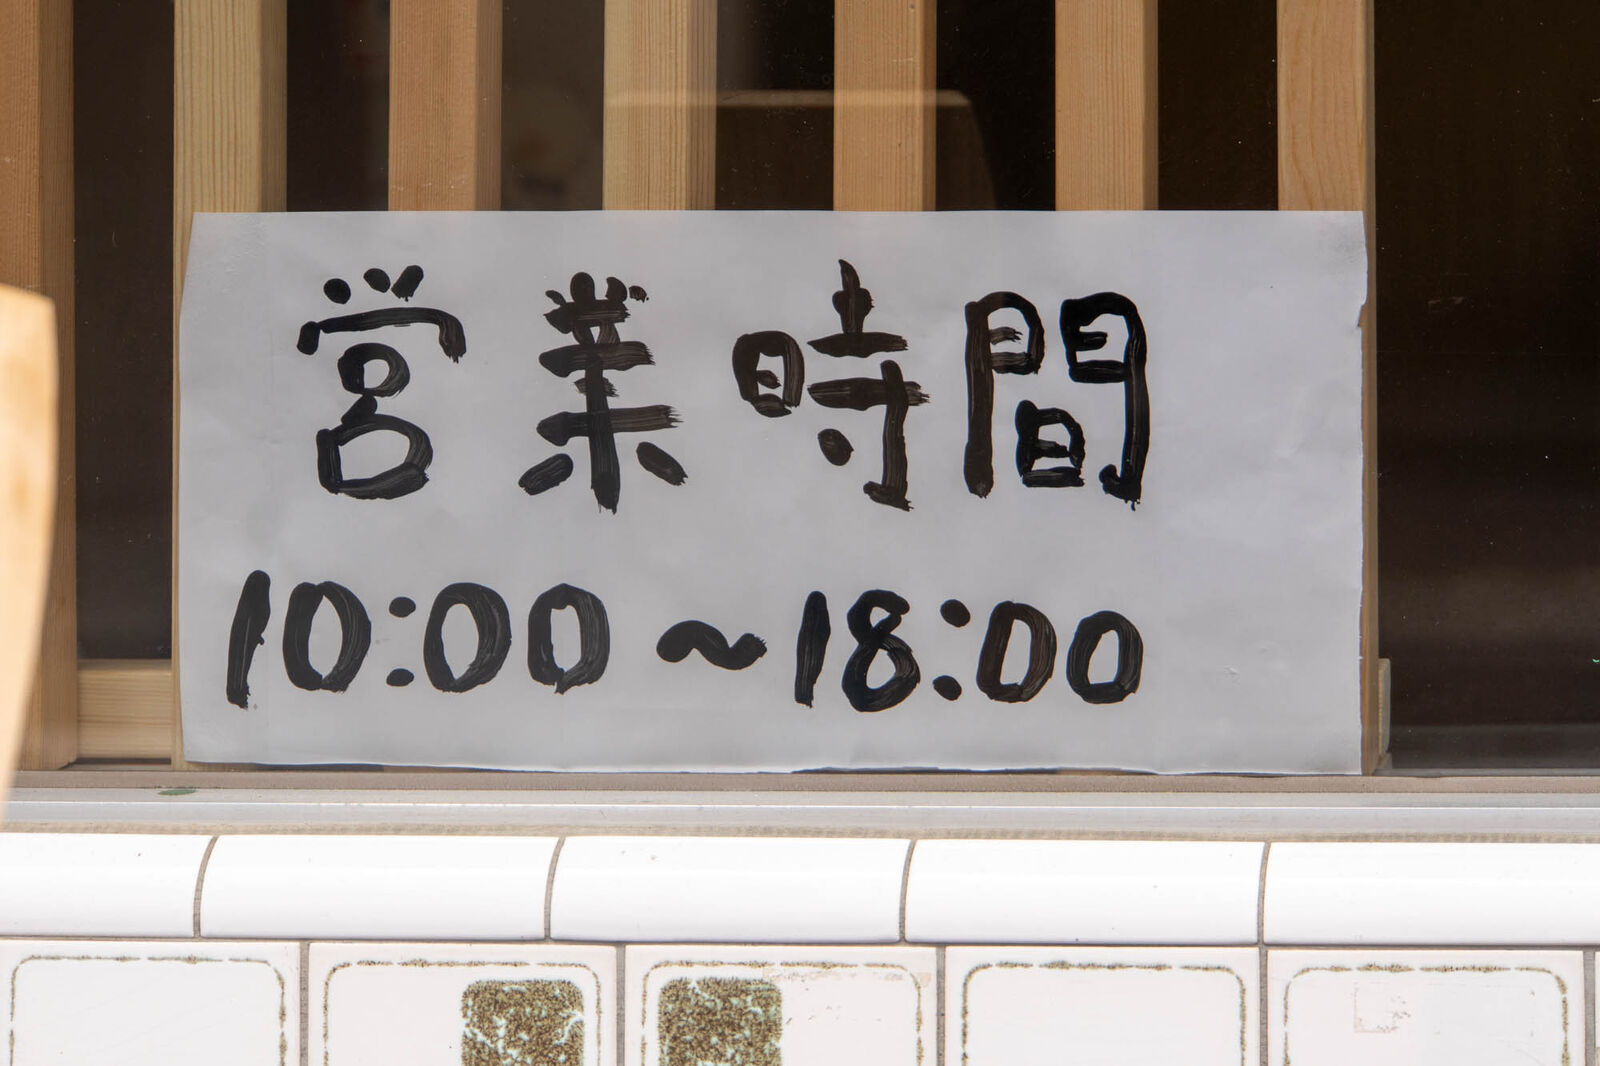 営業時間
10:00~18:00